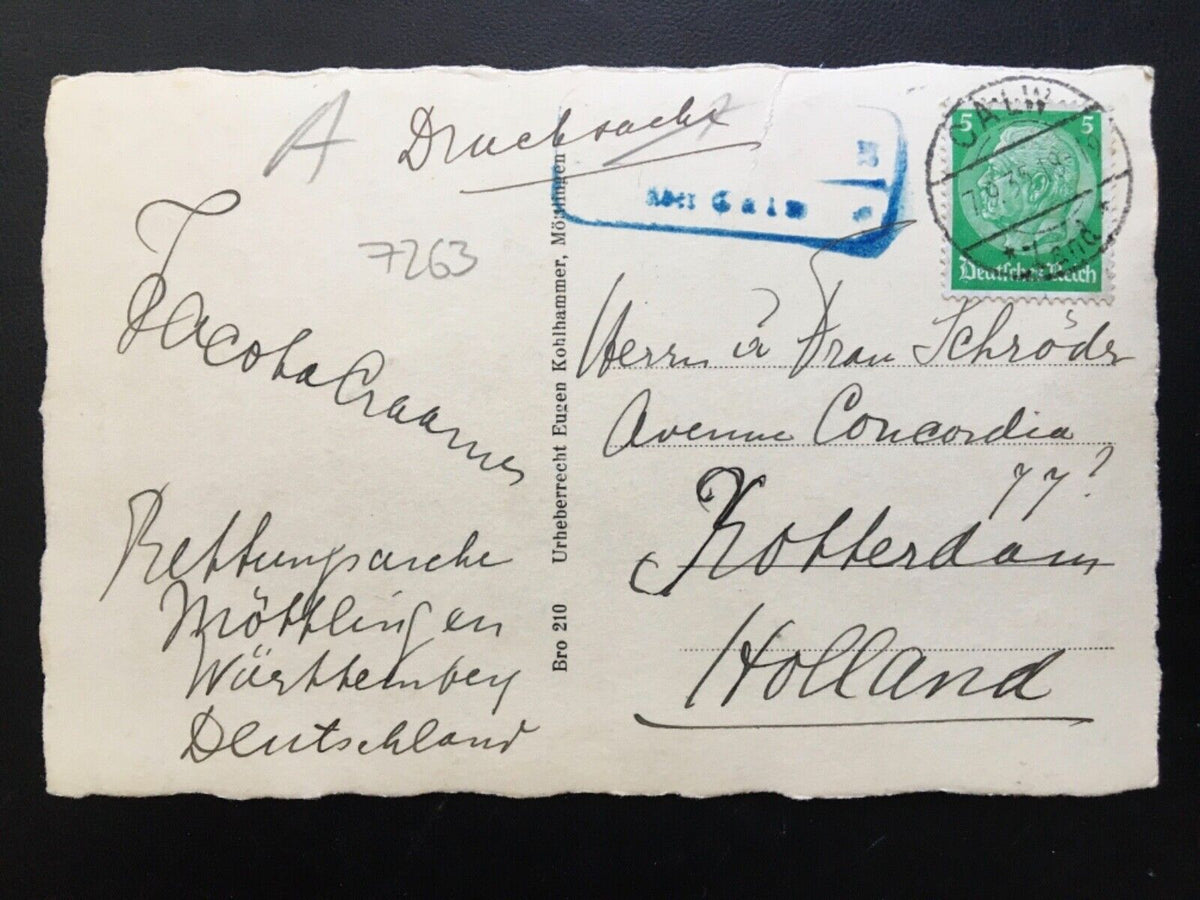 A
Drucksache
7263
Jacoba Craamer
Rettungsarche
Möttlingen
Württemberg
Deutschland
Bro 210 Urheberrecht Eugen Kohlhammer, Möttlingen
Calw
CALW
7.9.35
Land
5 5
Deutsches Reich
Herrn u Frau Schröder
Avenue Concordia
77?
Rotterdam
Holland